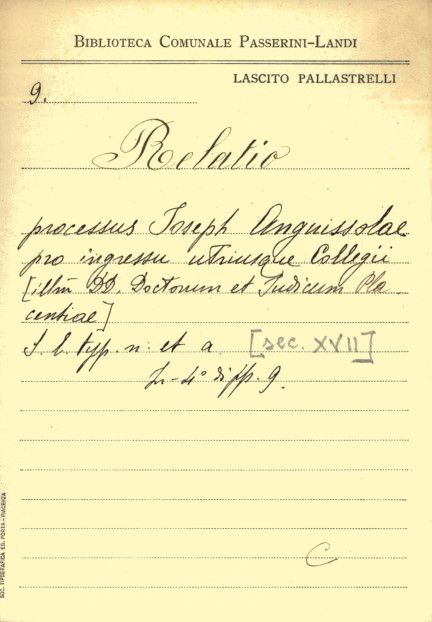 BIBLIOTECA COMUNALE PASSERINI-LANDI
LASCITO PALLASTRELLI
9.
Relatio
processus Joseph Anguissolae
pro ingressu utriusque Collegii
[illm DD. Doctorum et Judicum Pla
centiae]
S. l. typ. n. et a. [sec. XVII]
In-4° di pp. 9.
C
SOC. TIPOGRAFICA ED. PORTA-PIACENZA